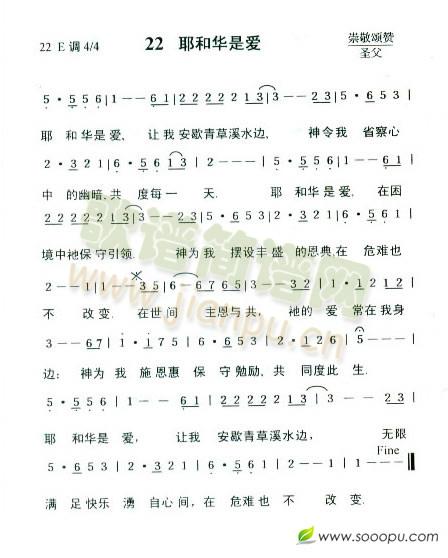 22 E 调 4/4 22 耶和华是爱 崇敬颂赞
圣父
5 · 5 5 6 | 1 — — 6 1 | 2 2 2 2 2 1 3 | 3 — — 3 | 5 · 6 5 3
耶 和华是爱, 让我安歇青草溪水边, 神令我 省察心
2 · 3 2 1 | 6 · 5 6 1 3 | 2 — — — | 5 · 5 5 6 | 1 — — 6 1 |
中 的幽暗,共 度每一 天. 耶 和华是爱, 在困
2 2 2 2 2 1 3 | 3 — 2 3 | 5 · 6 5 3 | 2 · 3 2 1 | 6 · 5 6 1 |
境中祂保守引领. 神为我 摆设丰盛 的恩典,在 危难也
2 — — 1 | 1 — — 3 5 | 6 — 6 7 6 5 | 3 — 3 2 | 1 · 2 1 2 |
不 改变. 在世间 主恩与共, 祂的爱 常在我身
3 — — 6 7 | 1 · 1 7 5 | 6 · 6 5 3 | 2 · 1 2 6 | 5 — — — |
边; 神为 我 施恩惠 保 守勉励, 共 同度此 生.
5 · 5 5 6 | 1 — — 6 1 | 2 2 2 2 2 1 3 | 3 — — 2 3 |
耶 和华是 爱, 让我 安歇青草溪水边, 无限
Fine
5 · 6 5 3 | 2 · 3 2 1 | 6 · 5 6 1 | 2 — 2 — | 1 — — — ‖
满 足快乐 湧 自心间,在 危难也 不 改变.
歌谱简谱网
www.jianpu.cn
www.sooopu.com